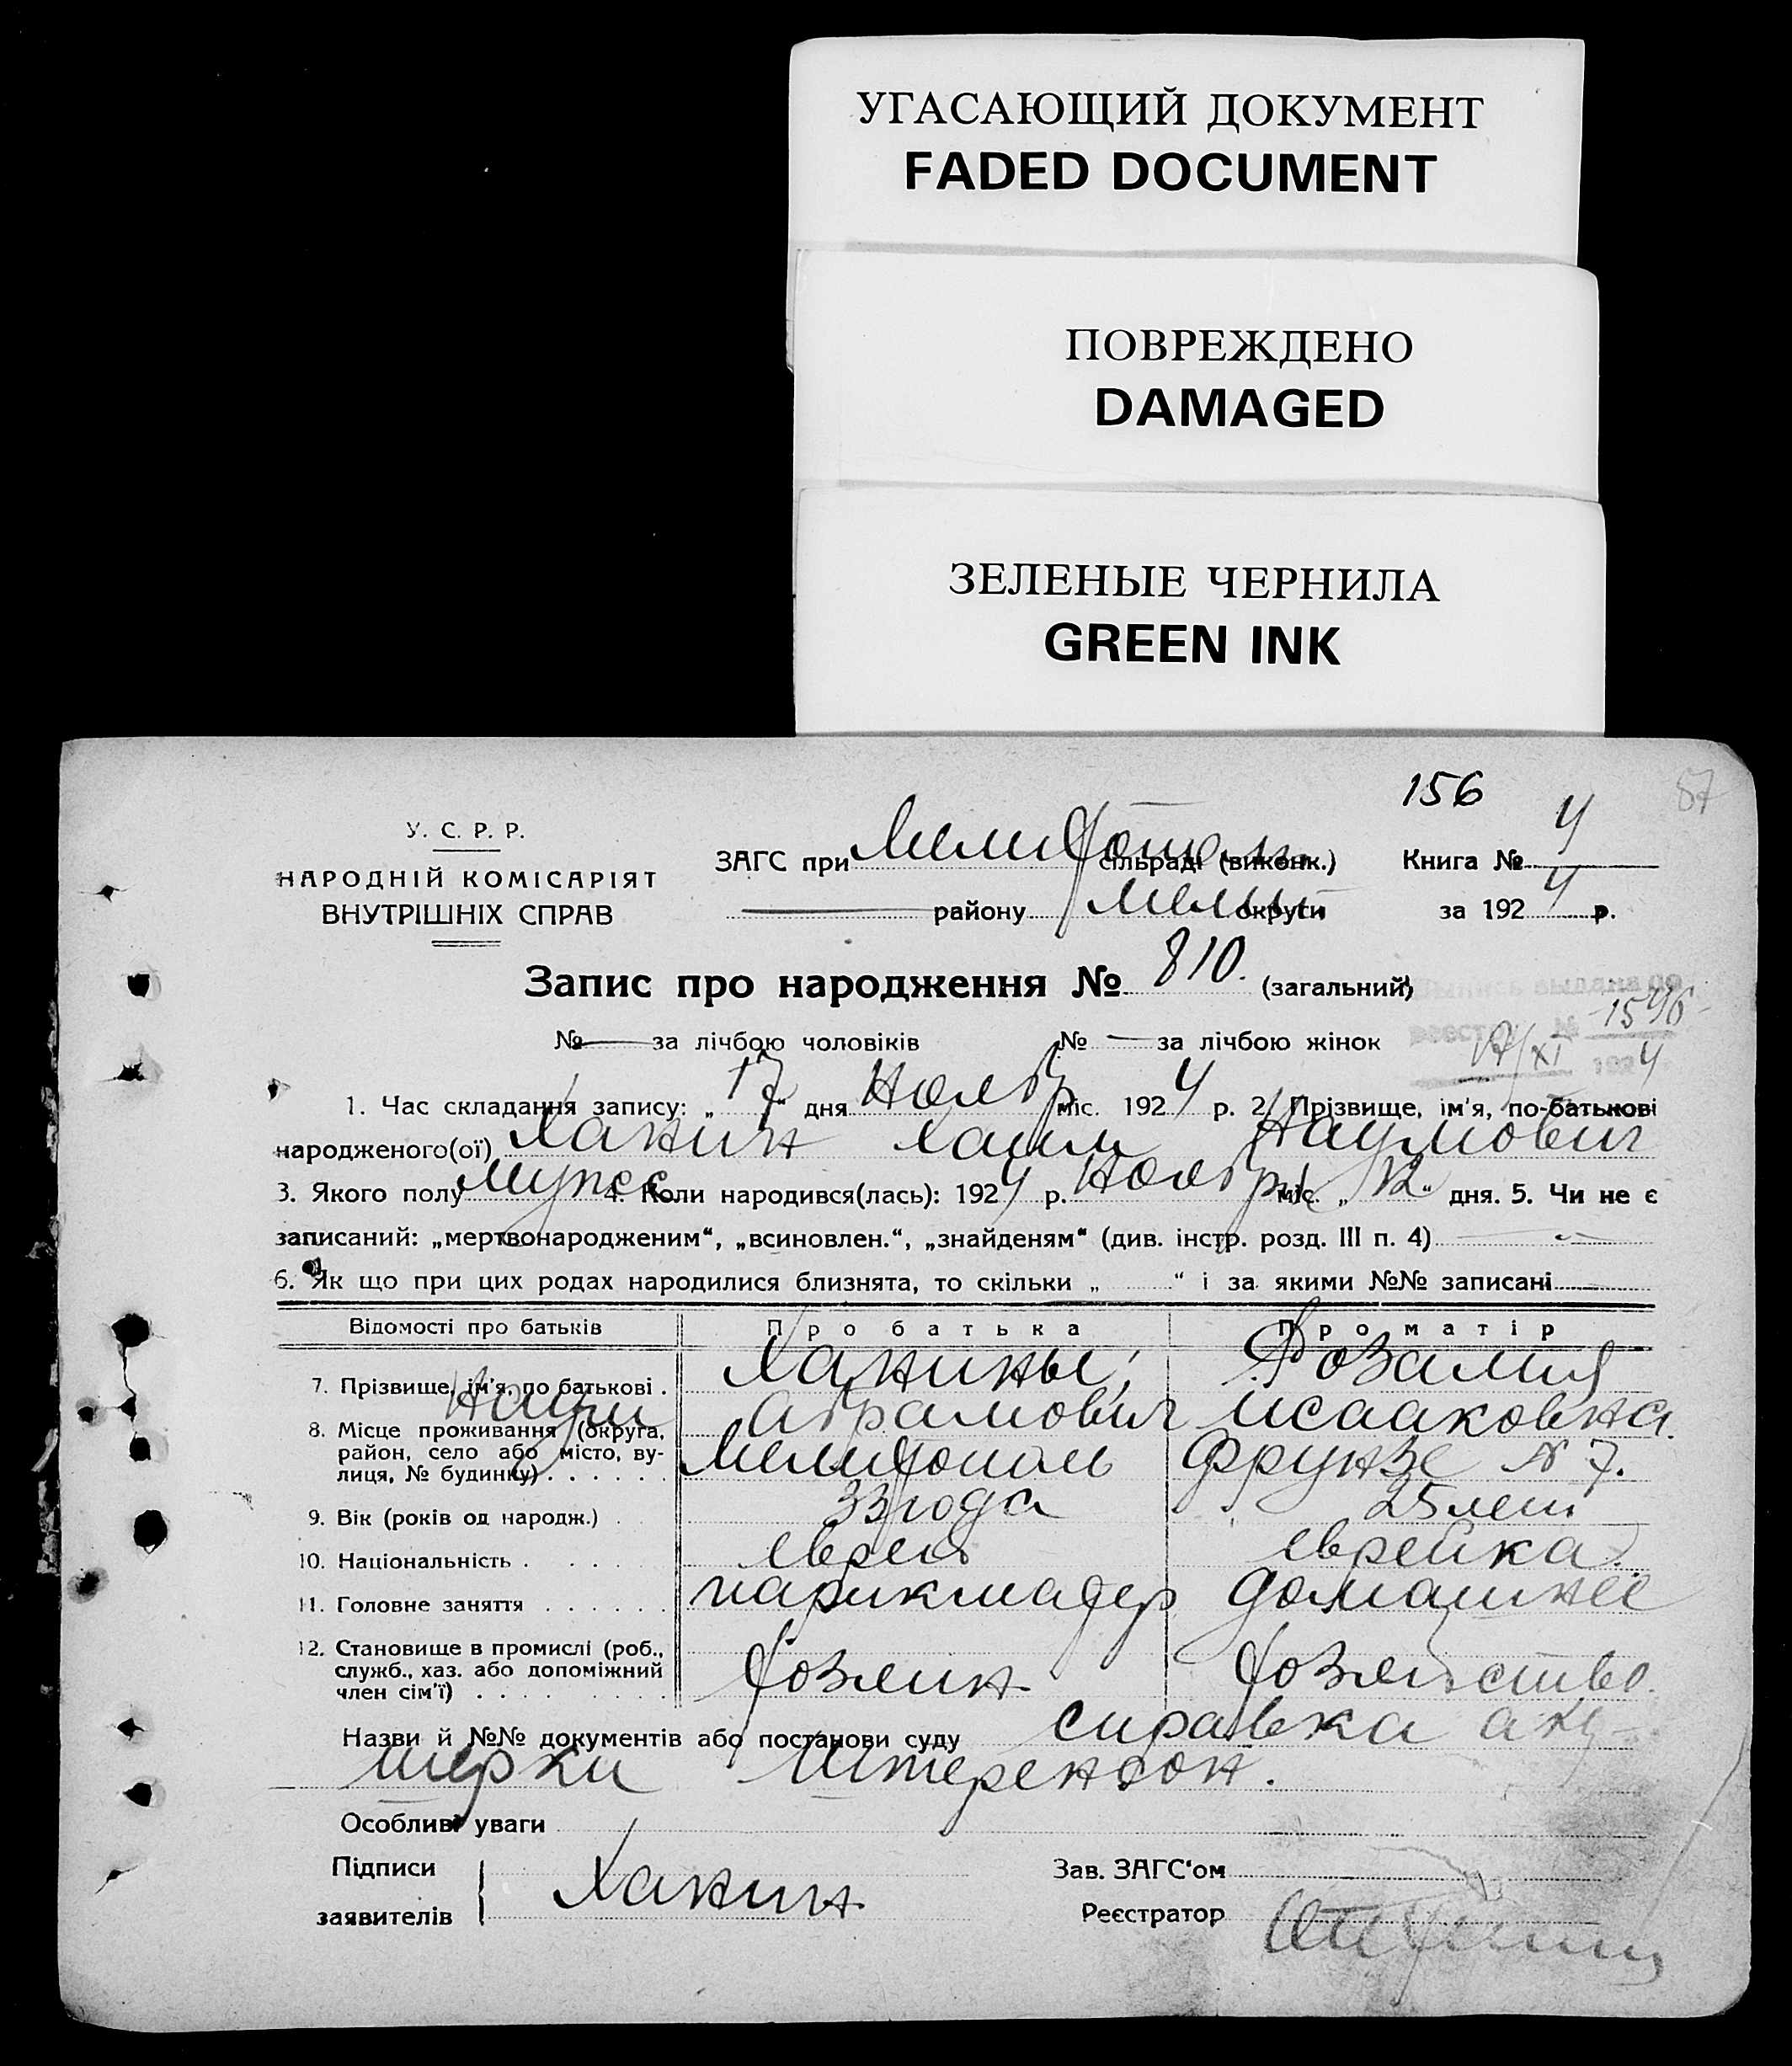 УГАСАЮЩИЙ ДОКУМЕНТ
FADED DOCUMENT
ПОВРЕЖДЕНО
DAMAGED
ЗЕЛЕНЫЕ ЧЕРНИЛА
GREEN INK
156 87
У. С. Р. Р.
НАРОДНІЙ КОМІСАРІЯТ
ВНУТРІШНІХ СПРАВ
ЗАГС при Мелитополь сільраді (виконк.) Книга № 4
району Мелит округи за 1924 р.
Запис про народження № 810. (загальний)
1546
№ — за лічбою чоловіків № — за лічбою жінок
17/XI 1924
1. Час складання запису: „17" дня Ноябр міс. 1924 р. 2. Прізвище, ім'я, по-батькові
народженого(ої) Ханин Хаим Наумович
3. Якого полу мужс. 4. Коли народився(лась): 1924 р. Ноября міс. „12" дня. 5. Чи не є
записаний: „мертвонародженим", „всиновлен.", „знайденям" (див. інстр. розд. III п. 4)
6. Як що при цих родах народилися близнята, то скільки „ " і за якими №№ записані
Відомості про батьків Про батька Про матір
7. Прізвище, ім'я, по батькові . Ханины; Розалия
Наум Абрамович Исааковна.
8. Місце проживання (округа, район, село або місто, вулиця, № будинку) . . . . . . Мелитополь Фрунзе № 7.
9. Вік (років од народж.) . 33 года 25 лет
10. Національність . . . . еврей еврейка.
11. Головне заняття . . . . . . парикмахер домашнее
12. Становище в промислі (роб., служб., хаз. або допоміжний член сім'ї) . . . . . . . хозяин хозяйство.
Назви й №№ документів або постанови суду справка аку-
шерки Штеренсон.
Особливі уваги
Підписи
заявителів Ханин
Зав. ЗАГС'ом
Реєстратор